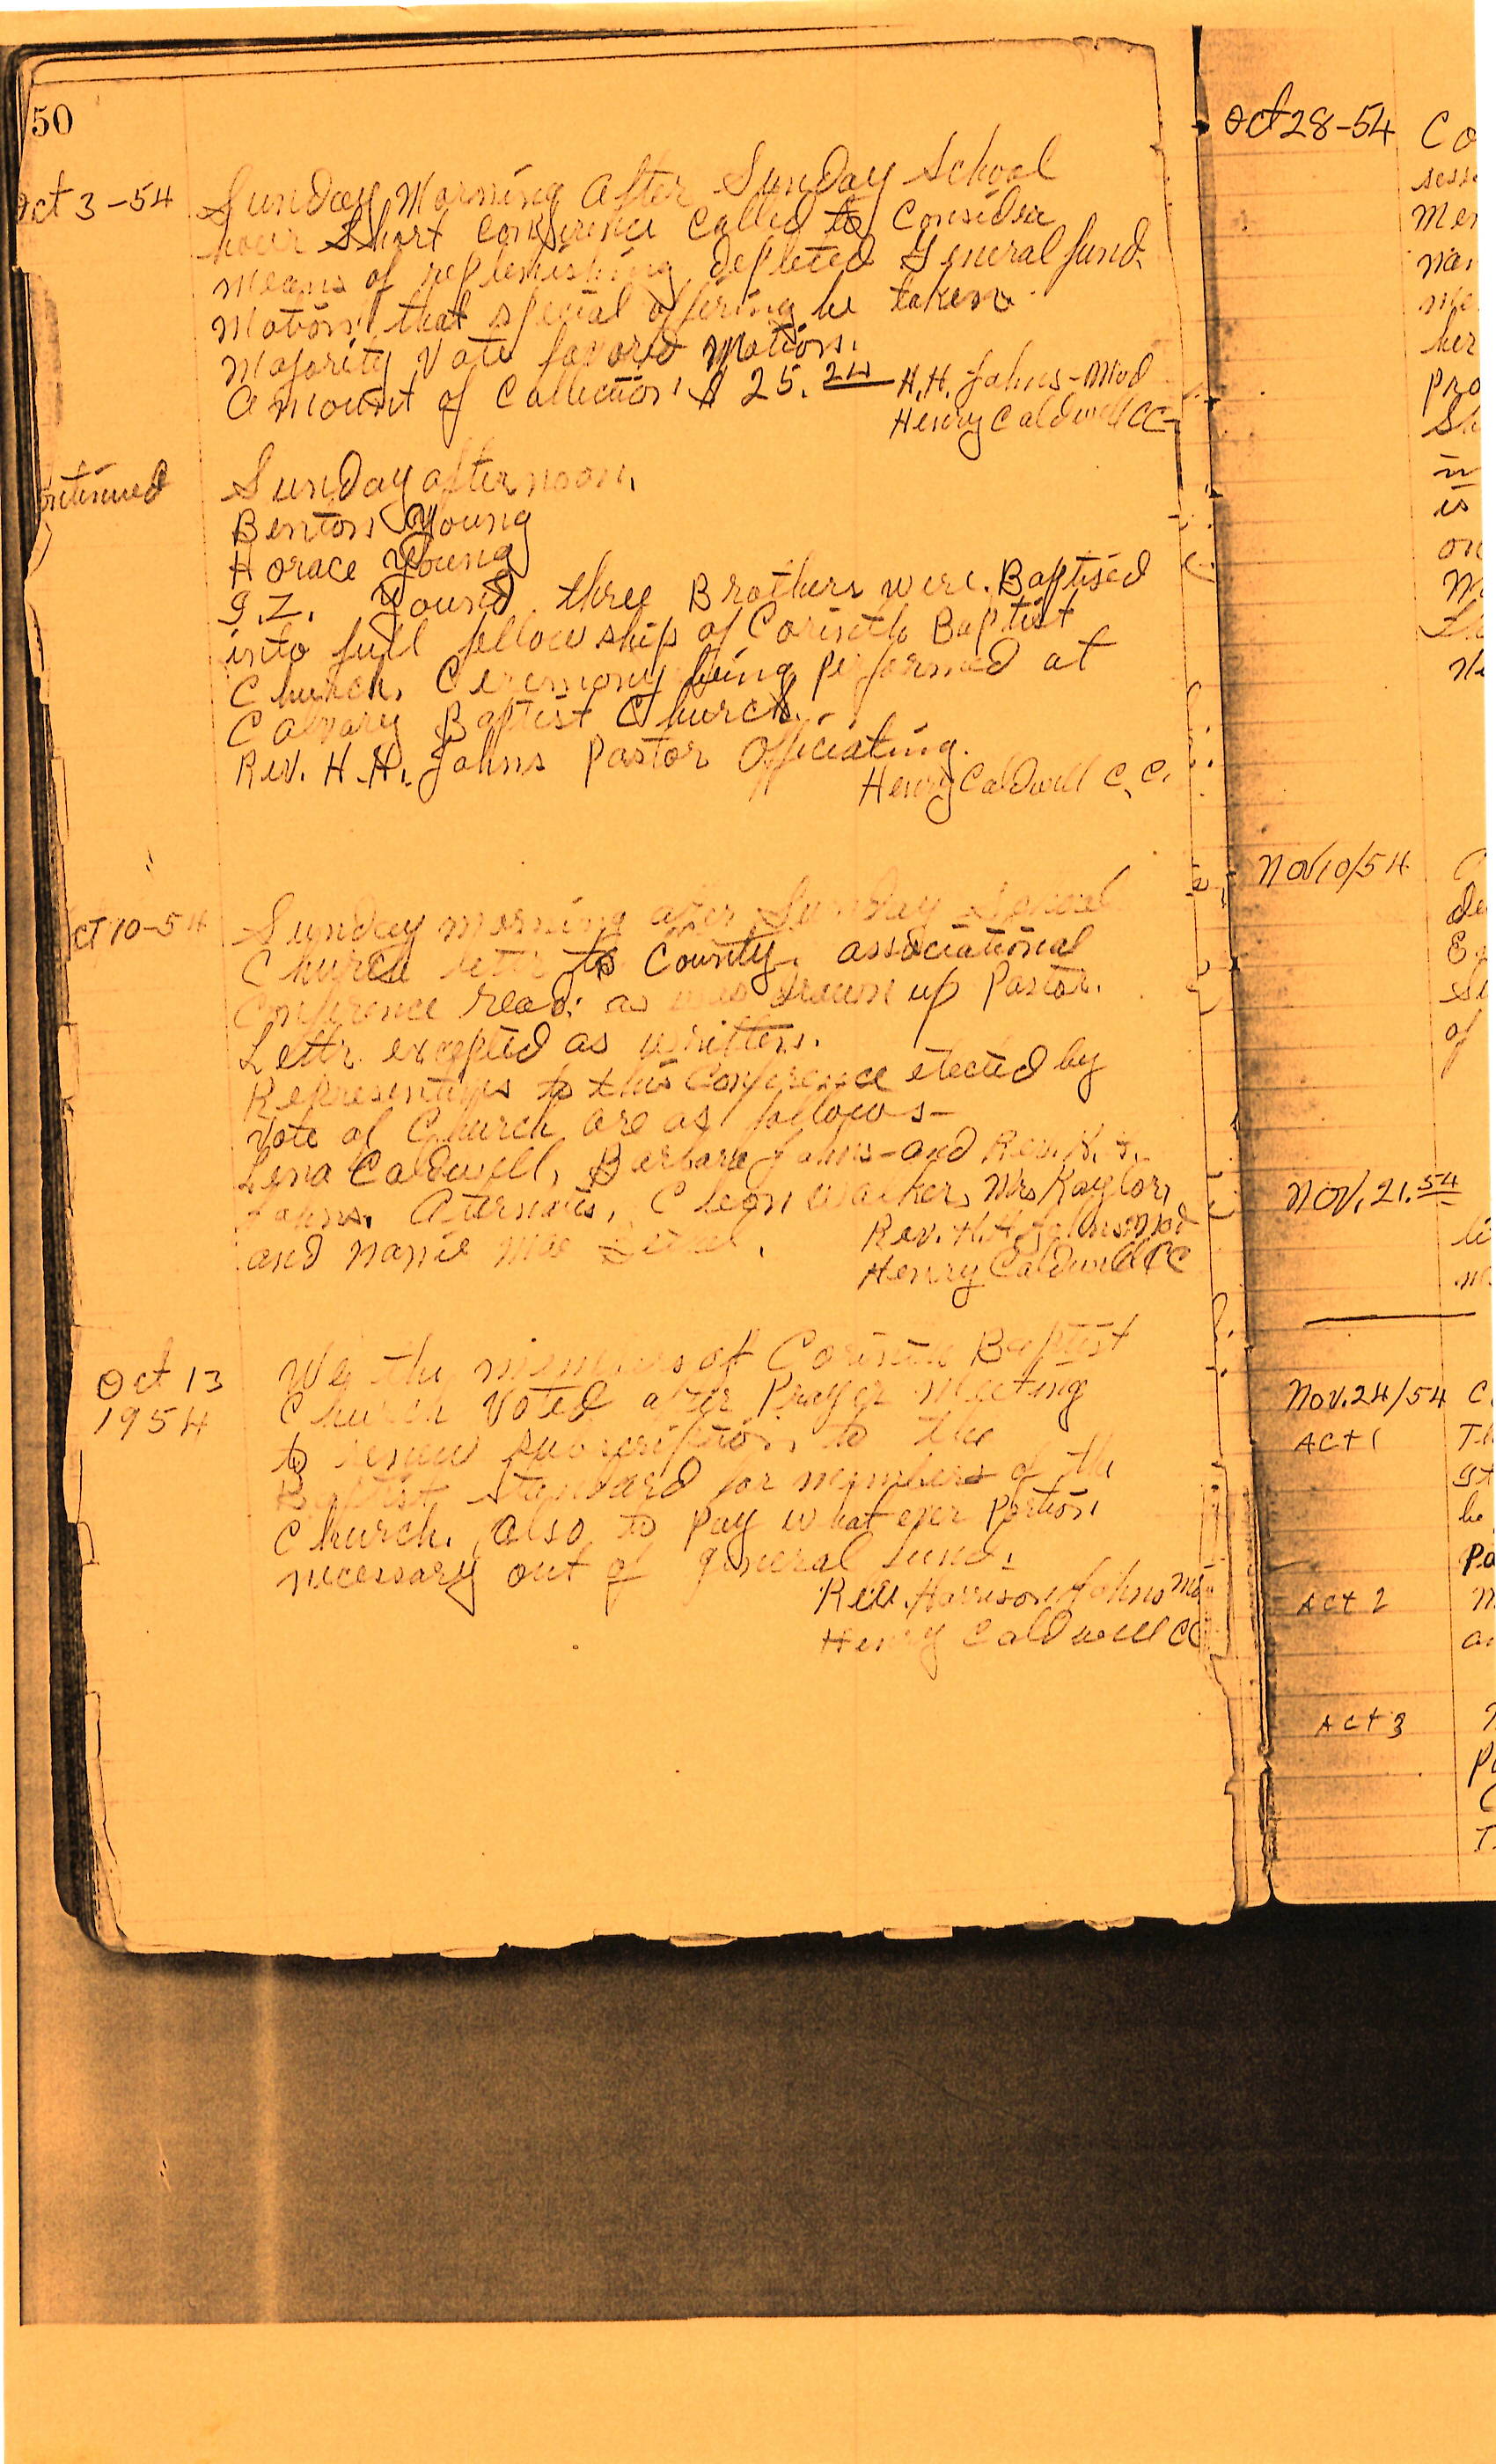 50
Oct 3-54 Sunday Morning After Sunday School
hour Short conference called to consider
means of replenishing depleted General fund.
Motion that special offering be taken.
Majority Vote favored Motion.
Amount of Collection $25.24 H.H. Johns-Mod
Henry Caldwell CC
ontinued Sunday afternoon.
Benton Young
Horace Young
Young three Brothers were Baptised
into full fellowship of Corinth Baptist
Church. Ceremony being performed at
Calvary Baptist Church.
Rev. H.H. Johns Pastor Officiating.
Henry Caldwell C.C.
ct 10-54 Sunday morning after Sunday School
Church letter to County associational
Conference read: as was drawn up Pastor.
Lettr excepted as written.
Representives to this Conference elected by
Vote of Church are as follows-
Lena Caldwell, Barbara Johns-and Rev. H.H.
Johns. Aternates, Cleon Walker, Mrs Kaylor,
and Nanie Mae
Rev. H.H Johns Mod
Henry Caldwell CC
Oct 13 We the members of Corinth Baptist
1954 Church Voted after Prayer Meeting
to renew subscription to the
Baptist standard for members of the
Church. also to Pay what ever Portion
necessary out of general fund.
Rev. Harrison Johns Mo
Henry Caldwell CC
Oct 28-54 Co
sess
Mem
nan
me
her
pro
Sh
in
is
on
Nov 10/54
de
of
Nov. 21.54
Nov. 24/54 C
Act 1 Th
be
Pa
Act 2 M
an
Act 3